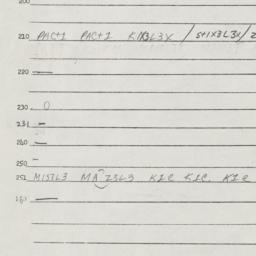 200
210 PAC+1 PAC+1 K1X3L3X / S+1X3L3X/2
220 —
230 0
231 –
240 –
250 -
251 M1S3L3 MA 3L3 K1C K1C K1C
260 —